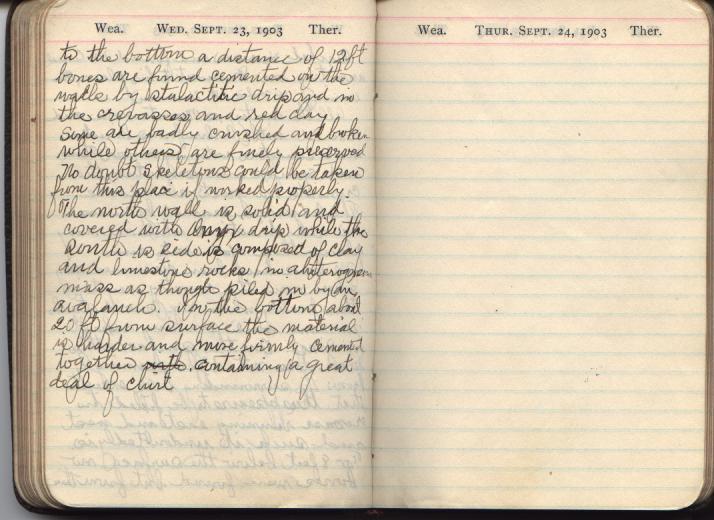 Wea. WED. SEPT. 23, 1903 Ther.
to the bottom a distance of 12 ft
bones are found cemented on the
walls by stalactitic drip and in
the crevasses and red clay
Some are badly crushed and broken
while others are finely preserved
No doubt skeletons could be taken
from this place if worked properly.
The north wall is solid and
covered with drip while the
South is side is composed of clay
and limestone rocks in a heterogen
mass as though piled in by an
avalanch. In the bottom about
20 ft from surface the material
is harder and more firmly cement
together with containing a great
deal of chirt
Wea. THUR. SEPT. 24, 1903 Ther.